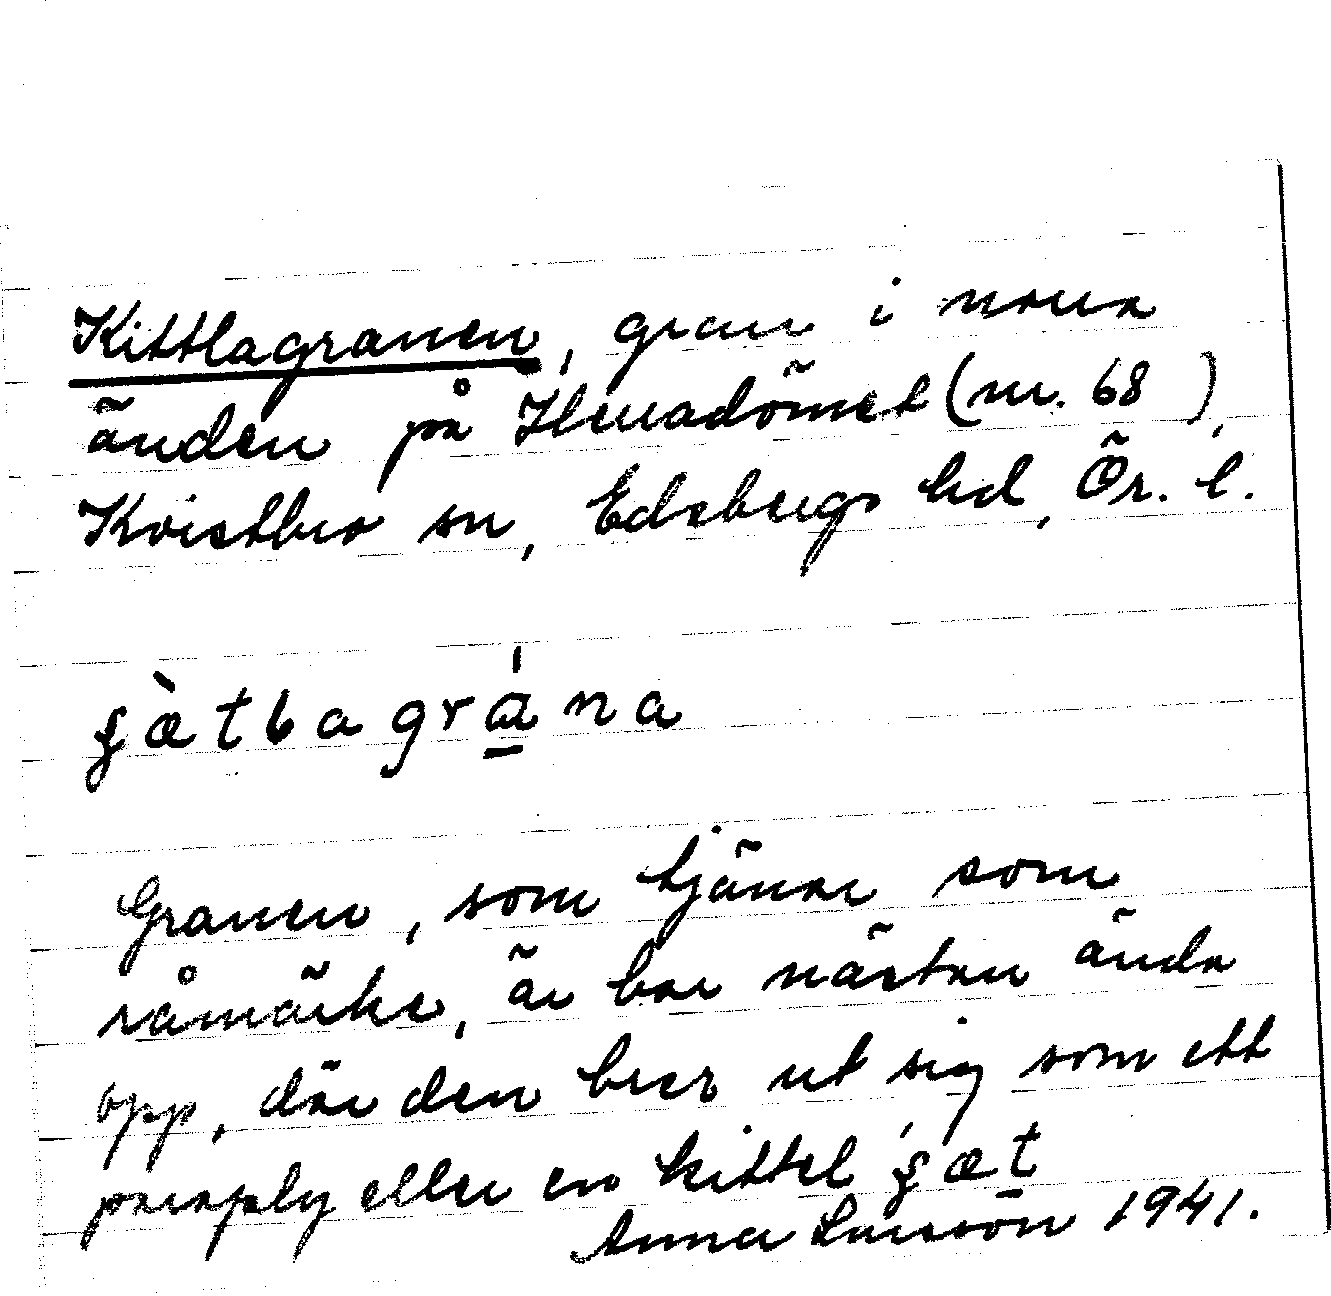 Kittlagranen, gran i norra
änden på Ilenadömet (nr. 68 ),
Kvistbro sn, Edsbergs hd, Ör. l.
ʂæ̀tƅagrána
Granen, som tjänar som
råmärke, är bar nästan ända
opp, där den brer ut sig som ett
paraply eller en kittel ʂæt
Anna Larsson 1941.